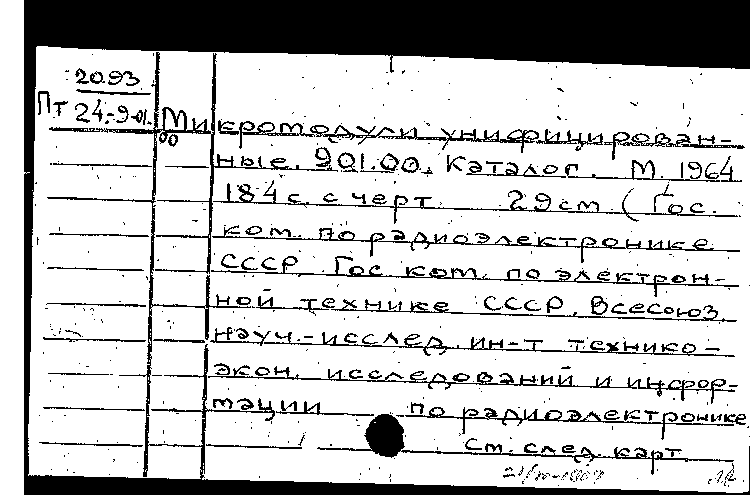 20.93
Пт 24-9-01.
Микромодули унифицирован-
ные. 901.00. Каталог. М. 1964
184 с. с черт 29 cm (Гос.
ком. по радиоэлектронике
СССР. Гос ком. по электрон-
ной технике СССР. Всесоюз.
науч.-исслед. ин-т технико-
экон. исследований и инфор-
мации по радиоэлектронике
См. след карт